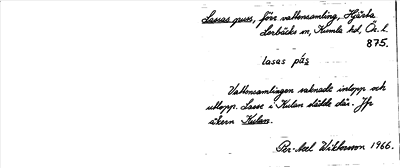 Lassas puss, förr vattensamling, Hjärsta
Lerbäcks sn, Kumla hd, Ör. l.
875.
lasas pás
Vattensamlingen saknade inlopp och
utlopp. Lasse i Kulan där. Jfr
åkern Kulan.
Per-Axel Wiktorsson 1966.